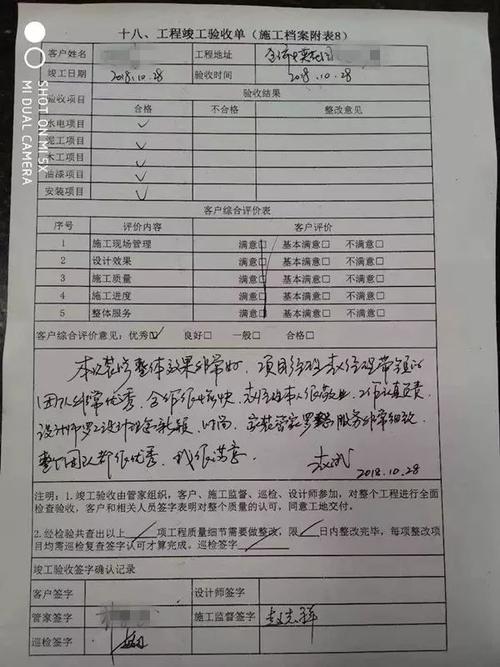 十八、工程竣工验收单（施工档案附表8）
客户姓名 工程地址
竣工日期 2018.10.28 验收时间 2018.10.28
验收项目 验收结果
合格 不合格 整改意见
水电项目 ✓
泥工项目 ✓
木工项目 ✓
油漆项目 ✓
安装项目 ✓
客户综合评价表
序号 评价内容 客户评价
1 施工现场管理 满意□ 基本满意□ 不满意□
2 设计效果 满意□ 基本满意□ 不满意□
3 施工质量 满意□ 基本满意□ 不满意□
4 施工进度 满意□ 基本满意□ 不满意□
5 整体服务 满意□ 基本满意□ 不满意□
客户综合评价意见：优秀☑ 良好□ 一般□ 合格□
本次装修整体效果非常好，项目经理 经理带领的
团队非常优秀，合作很愉快， 经理本人很敬业，工作认真负责
设计师罗 设计理念新颖，时尚，家装管家罗 服务非常细致
整个团队都很优秀，我很满意
2018.10.28
注明：1.竣工验收由管家组织，客户、施工监督、巡检、设计师参加，对整个工程进行全面
检查验收，客户和相关人员签字表明对整个质量的认可，同意工地交付。
2.经检验共查出以上 项工程质量细节需要做整改，限 日内整改完毕，每项整改项
目均需巡检复查签字认可才算完成。巡检签字
竣工验收签字确认记录
客户签字 设计师签字
管家签字 施工监督签字 赵志辉
巡检签字
SHOT ON MI 5X
MI DUAL CAMERA